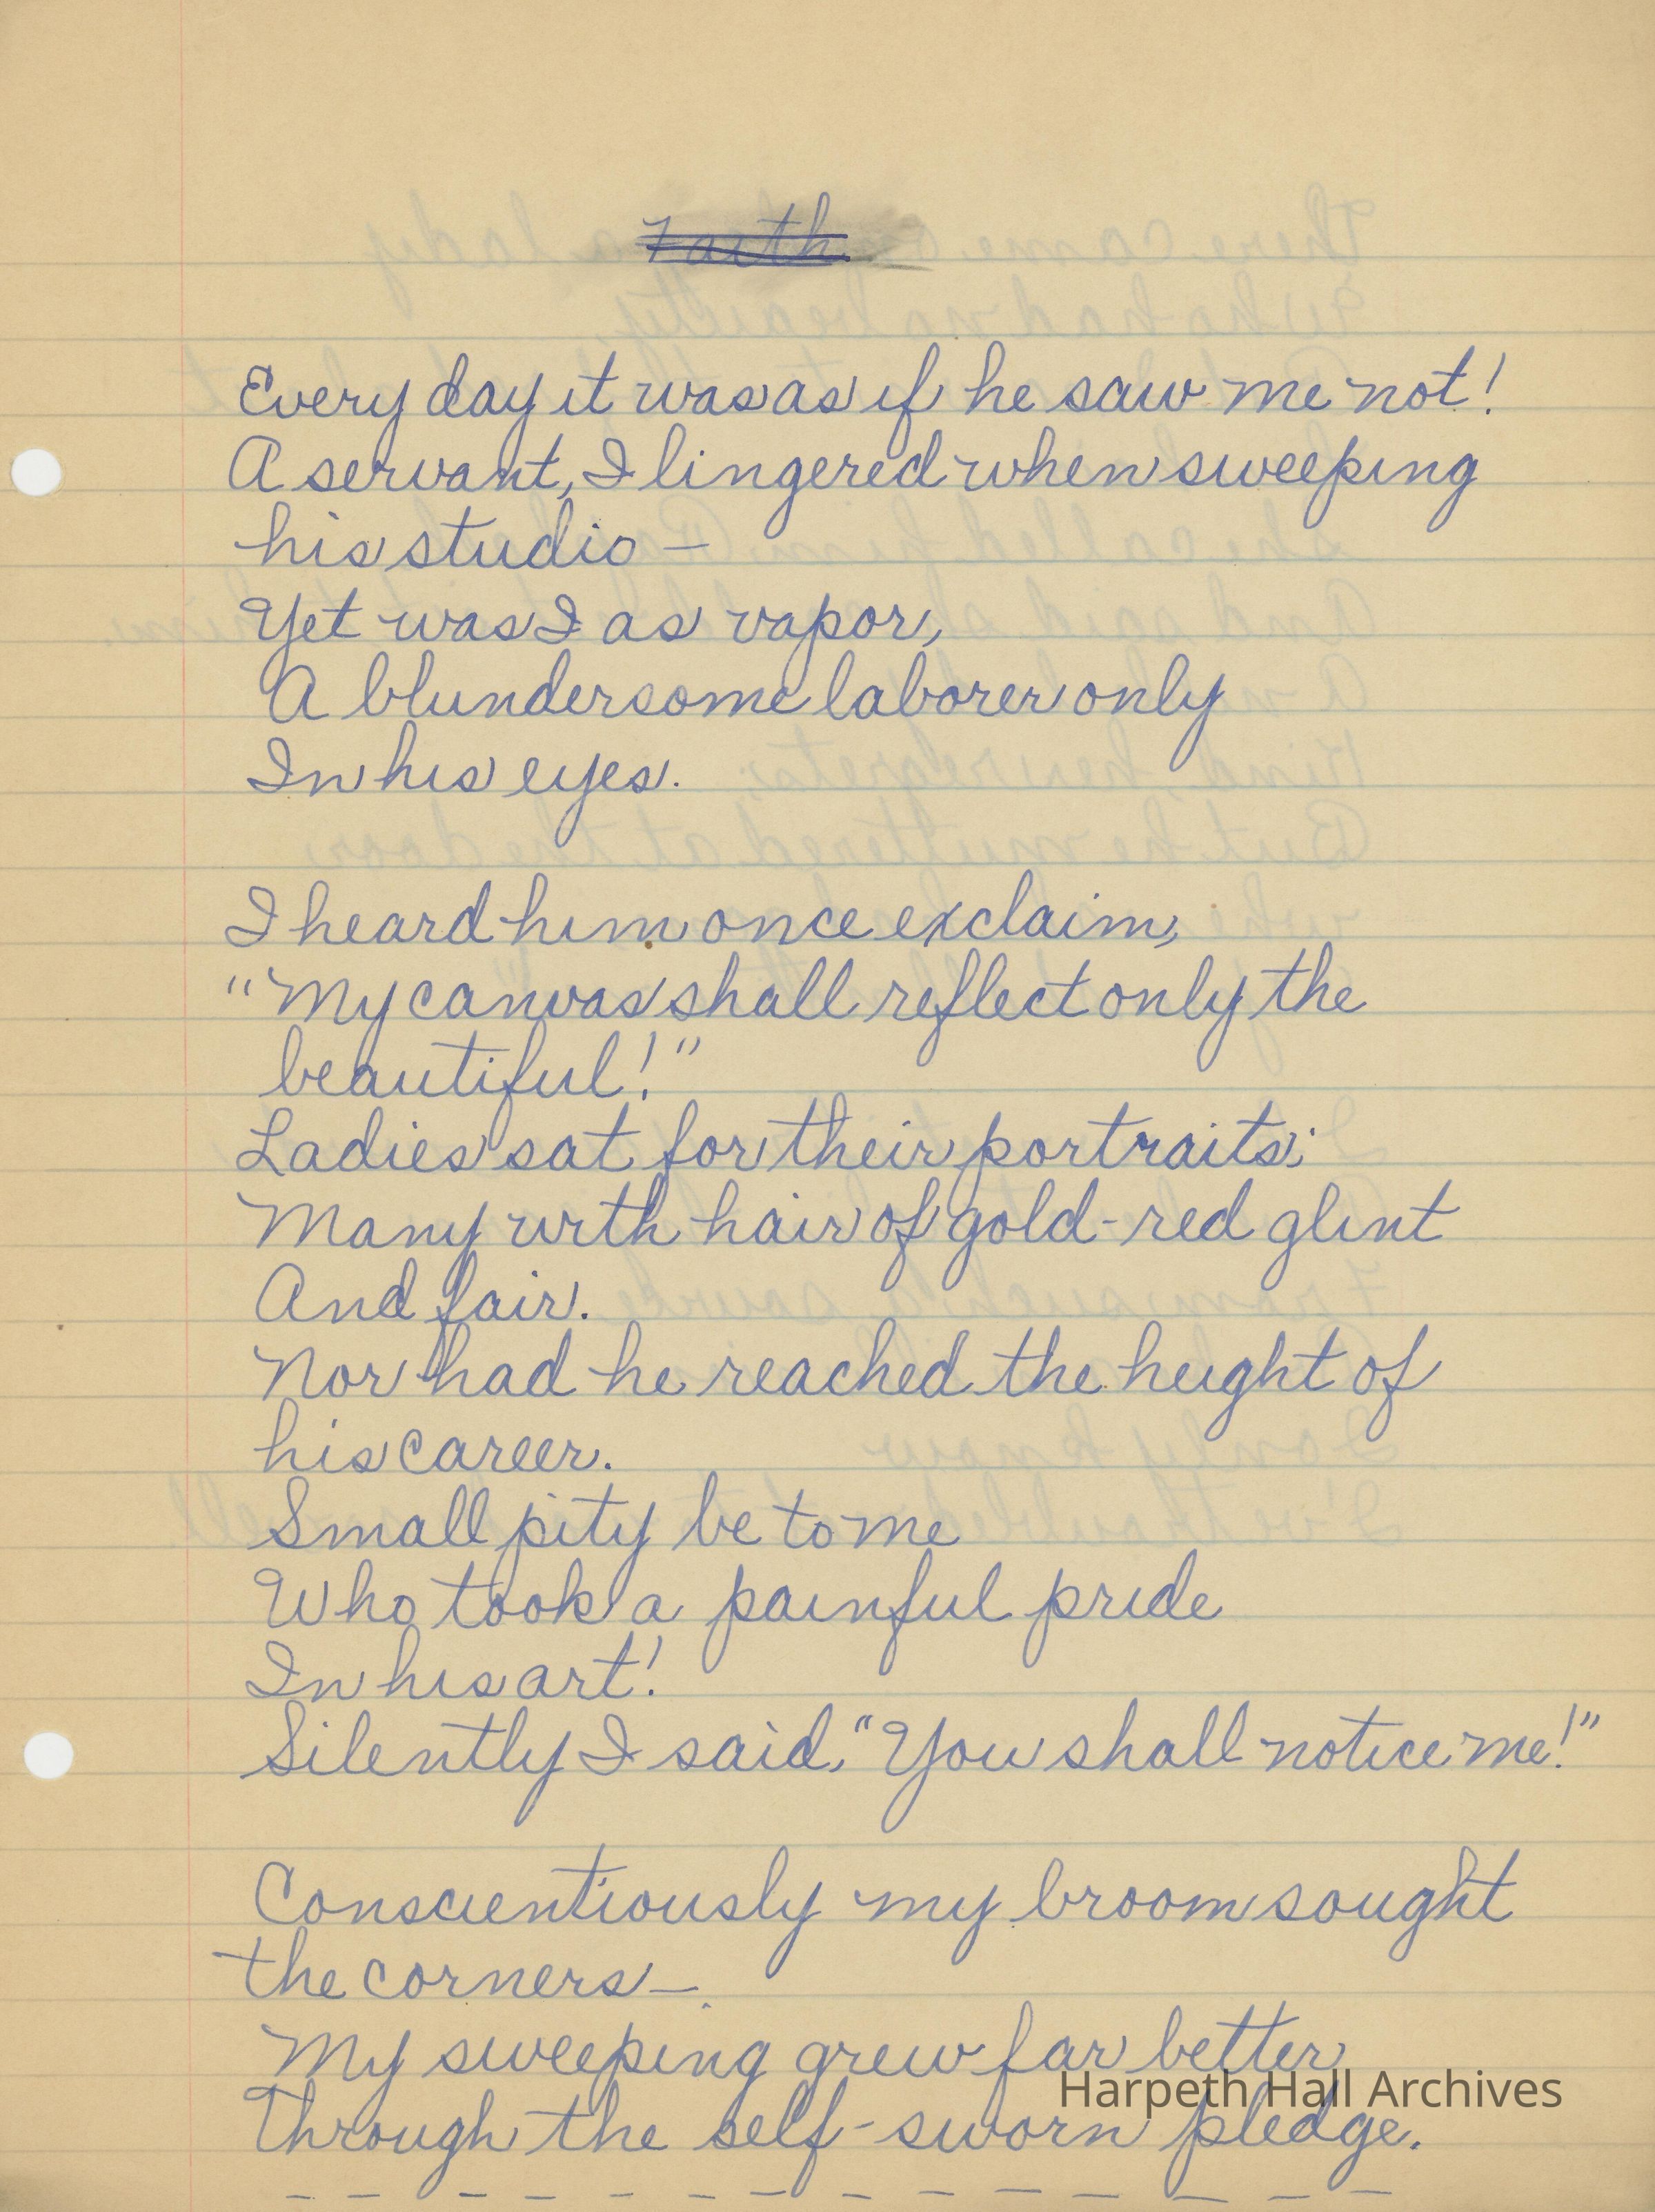 Faith
Every day it was as if he saw me not!
A servant, I lingered when sweeping
his studio –
Yet was I as vapor,
A blundersome laborer only
In his eyes.
I heard him once exclaim,
"My canvas shall reflect only the
beautiful!"
Ladies sat for their portraits;
Many with hair of gold-red glint
And fair.
Nor had he reached the height of
his career.
Small pity be to me
Who took a painful pride
In his art!
Silently I said, "You shall notice me!"
Conscientiously my broom sought
the corners –
My sweeping grew far better
Harpeth Hall Archives
Through the self-sworn pledge.